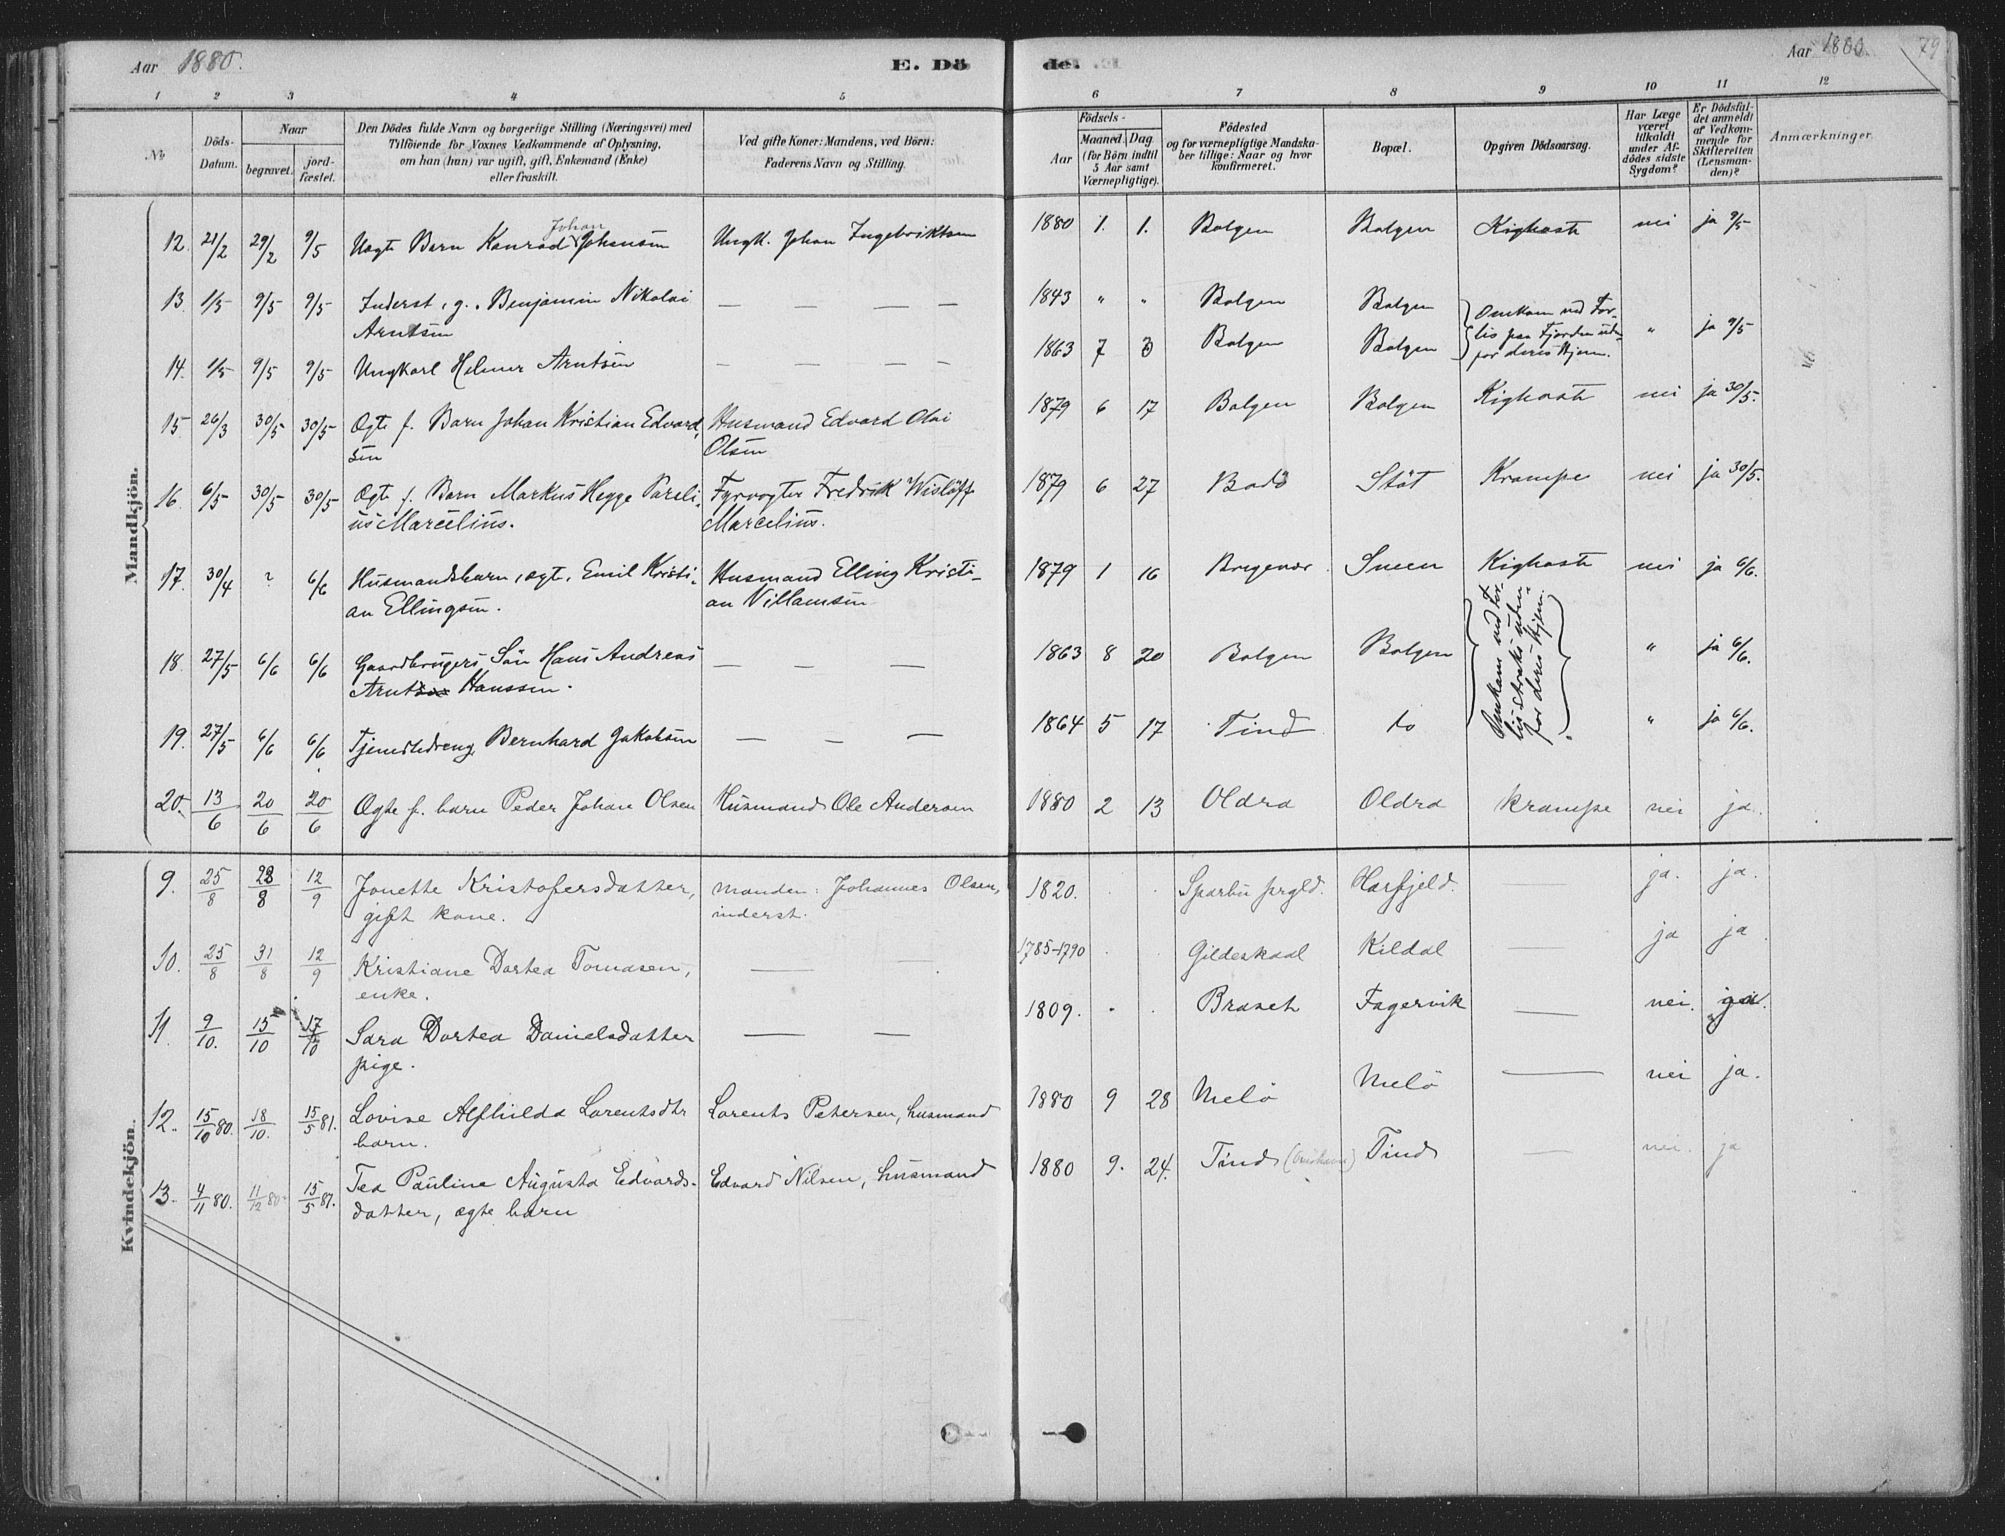 Aar 1880.
E. Dö
de.
Aar 1880.
79
1 2 3 4 5 6 7 8 9 10 11 12
No
Döds-Datum.
Naar
begravet.
jord-fæstet.
Den Dödes fulde Navn og borgerlige Stilling (Næringsvei) med
Tilföiende for Voxnes Vedkommende af Oplysning,
om han (hun) var ugift, gift, Enkemand (Enke)
eller fraskilt.
Ved gifte Koner: Mandens, ved Börn:
Faderens Navn og Stilling.
Födsels-
Aar
Maaned. Dag.
(for Börn indtil
5 Aar samt
Værnepligtige).
Födested
og for værnepligtige Mandska-
ber tillige: Naar og hvor
konfirmeret.
Bopæl.
Opgiven Dödsaarsag.
Har Læge
været
tilkaldt
under Af-
dödes sidste
Sygdom?
Er Dödsfal-
det anmeldt
af Vedkom-
mende for
Skifteretten
(Lensman-
den)?
Anmærkninger.
Mandkjön.
Johan
12. 21/2 29/2 9/5 Uægte Barn Konrad Johansen Ungk. Johan Ingebriktsen 1880 1. 1. Bolgen Bolgen Kighoste nei ja 9/5
13. 1/5 9/5 9/5 Inderst, g. Benjamin Nikolai — — — — 1843 " " Bolgen Bolgen Omkom ved For-
Arntsen lis paa Fjorden uden- " ja 9/5
14. 1/5 9/5 9/5 Ungkarl Helmer Arntsen — — — — 1863 7 3 Bolgen Bolgen for deres Hjem.
15 26/3 30/5 30/5 Ægte f. Barn Johan Kristian Edvard Husmand Edvard Olai 1879 6 17 Bolgen Bolgen Kighoste nei ja 30/5.
sen Olsen
16. 6/5 30/5 30/5 Ægte f. Barn Markus Hegge Pareli- Fyrvogter Fredrik Wislöff 1879 6 27 Bodö Stöt Krampe nei ja 30/5.
us Marcelius. Marcelius.
17. 30/4 ? 6/6 Husmandsbarn, ægt. Emil Kristi- Husmand Elling Kristi- 1879 1 16 Bregevær Sneen Kighoste nei ja 6/6.
an Ellingsen. an Villamsen
18. 27/5 6/6 6/6 Gaardbrugers Sön Hans Andreas — — — 1863 8 20 Bolgen Bolgen Omkom ved For- " ja 6/6.
Arntsen Hanssen. lis straks uden-
for deres Hjem.
19. 27/5 6/6 6/6 Tjenestedreng Bernhard Jakobsen — — — 1864 5 17 Tind do " " ja 6/6.
20. 13/6 20/6 20/6 Ægte f. barn Peder Johan Olsen Husmand Ole Andersen 1880 2 13 Oldra Oldra Krampe nei ja.
Kvindekjön.
9. 25/8 28/8 12/9 Jonette Kristofersdatter, manden: Johannes Olsen, 1820. . . Sparbu prgld. Harfjeld. — ja. ja.
gift kone. inderst.
10. 25/8 31/8 12/9 Kristiane Dortea Tomasen, — — 1785-1790 . . Gildeskaal Kildal — ja ja.
enke.
11. 9/10. 15/10 17/10 Sara Dortea Danielsdatter — — 1809. . . Braset Fagervik — nei. ja.
pige.
12. 15/10 80. 18/10. 15/5 81. Lovise Alfhilda Lorentsdtr Lorents Petersen, husmand 1880 9 28 Melö Melö — nei ja.
barn.
13. 4/11 80. 11/12 80 15/5 81. Tea Pauline Augusta Edvards- Edvard Nilsen, husmand 1880 9. 24. Tind Tind — nei. ja
datter, ægte barn